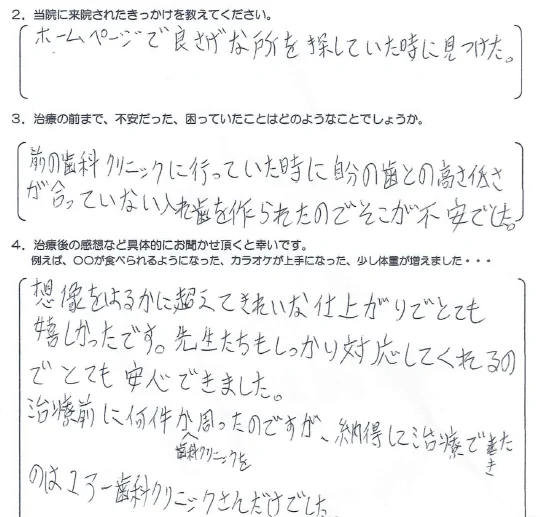 2. 当院に来院されたきっかけを教えてください。
ホームページで良さげな所を探していた時に見つけた。
3. 治療の前まで、不安だった、困っていたことはどのようなことでしょうか。
前の歯科クリニックに行っていた時に自分の歯との高さ低さ
が合っていない入れ歯を作られたのでそこが不安でした。
4. 治療後の感想など具体的にお聞かせ頂くと幸いです。
例えば、〇〇が食べられるようになった、カラオケが上手になった、少し体重が増えました・・・
想像をはるかに超えてきれいな仕上がりでとても
嬉しかったです。先生たちもしっかり対応してくれるの
でとても安心できました。
治療前に何件か周ったのですが、納得して治療できた
歯科クリニックを
のはユアー歯科クリニックさんだけでした。